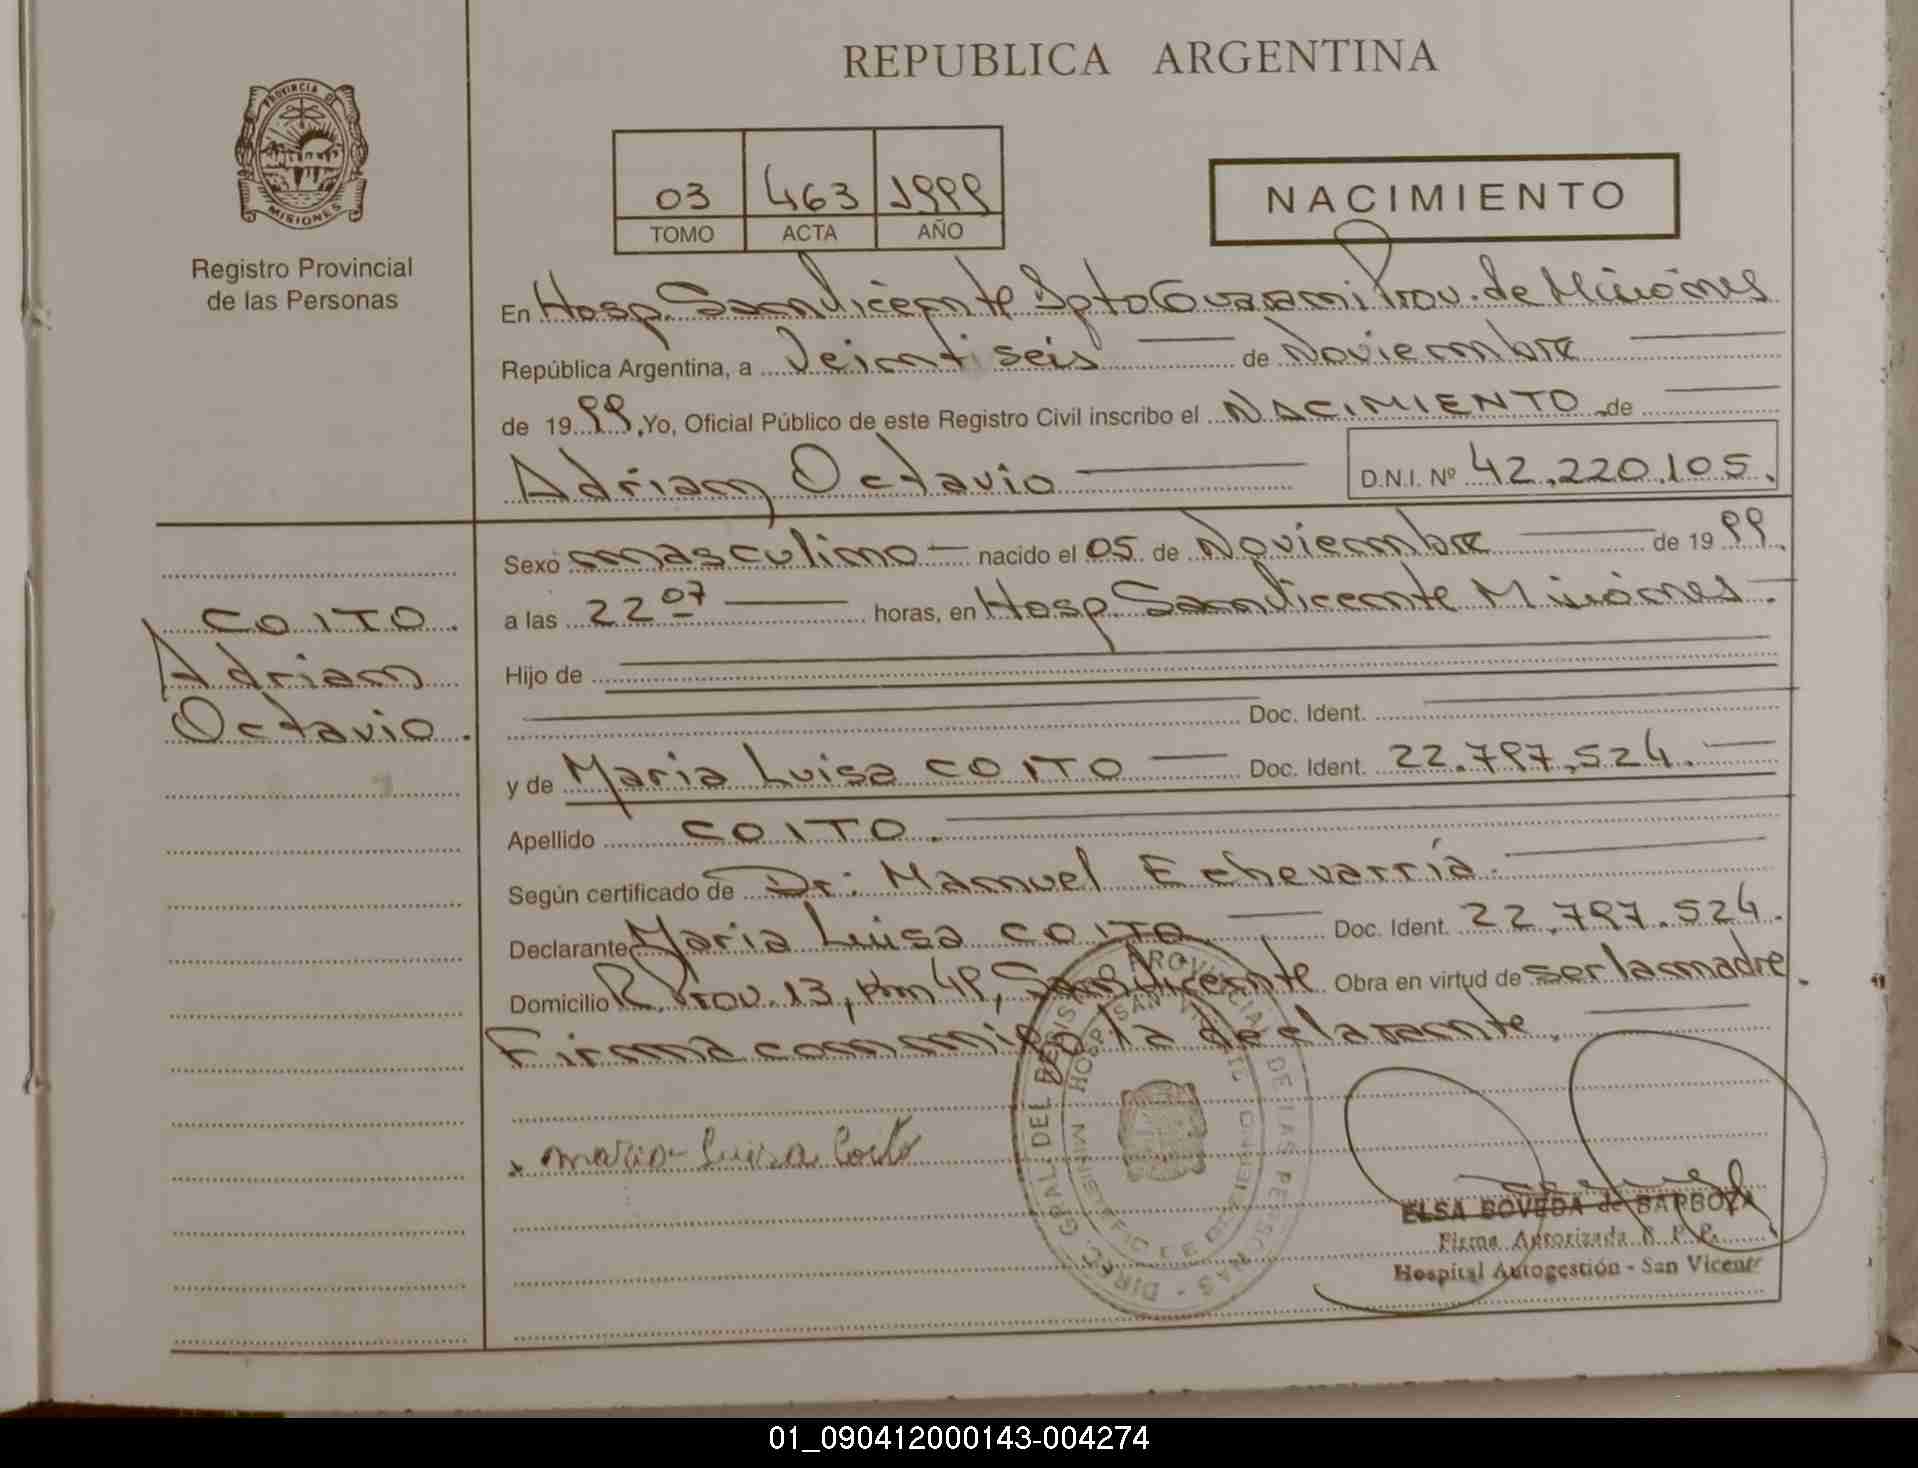 REPUBLICA ARGENTINA
PROVINCIA DE
MISIONES
Registro Provincial
de las Personas
03 463 1999
TOMO ACTA AÑO
NACIMIENTO
En Hosp. San Vicente Dpto Guarani Prov. de Misiones
República Argentina, a Veinti seis de Noviembre
de 1999, Yo, Oficial Público de este Registro Civil inscribo el NACIMIENTO de
Adrian Octavio D.N.I. Nº 42.220.105.
Sexo masculino nacido el 05 de Noviembre de 1999.
a las 22 07 horas, en Hosp. San Vicente Misiones.
COITO.
Adrian
Octavio.
Hijo de
Doc. Ident.
y de Maria Luisa COITO Doc. Ident. 22.797.524.
Apellido COITO.
Según certificado de Dr: Manuel Echevarría.
Declarante Maria Luisa COITO Doc. Ident. 22.797.524.
Domicilio R. Prov. 13, Km 49, San Vicente Obra en virtud de ser la madre.
Firma conmigo la declarante.
DIREC. GRAL. DEL REGISTRO PROVINCIAL DE LAS PERSONAS
HOSP. SAN VICENTE
Maria Luisa Coito
ELSA BOVEDA de BARBOZA
Firma Autorizada R. P. P.
Hospital Autogestión - San Vicente
01_090412000143-004274